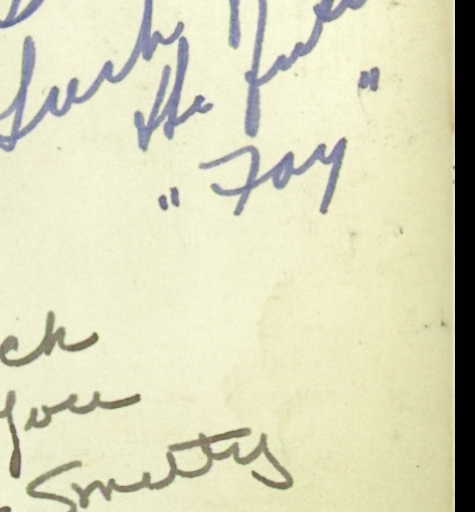 Luck
the
"Foy"
ck
you
Smitty